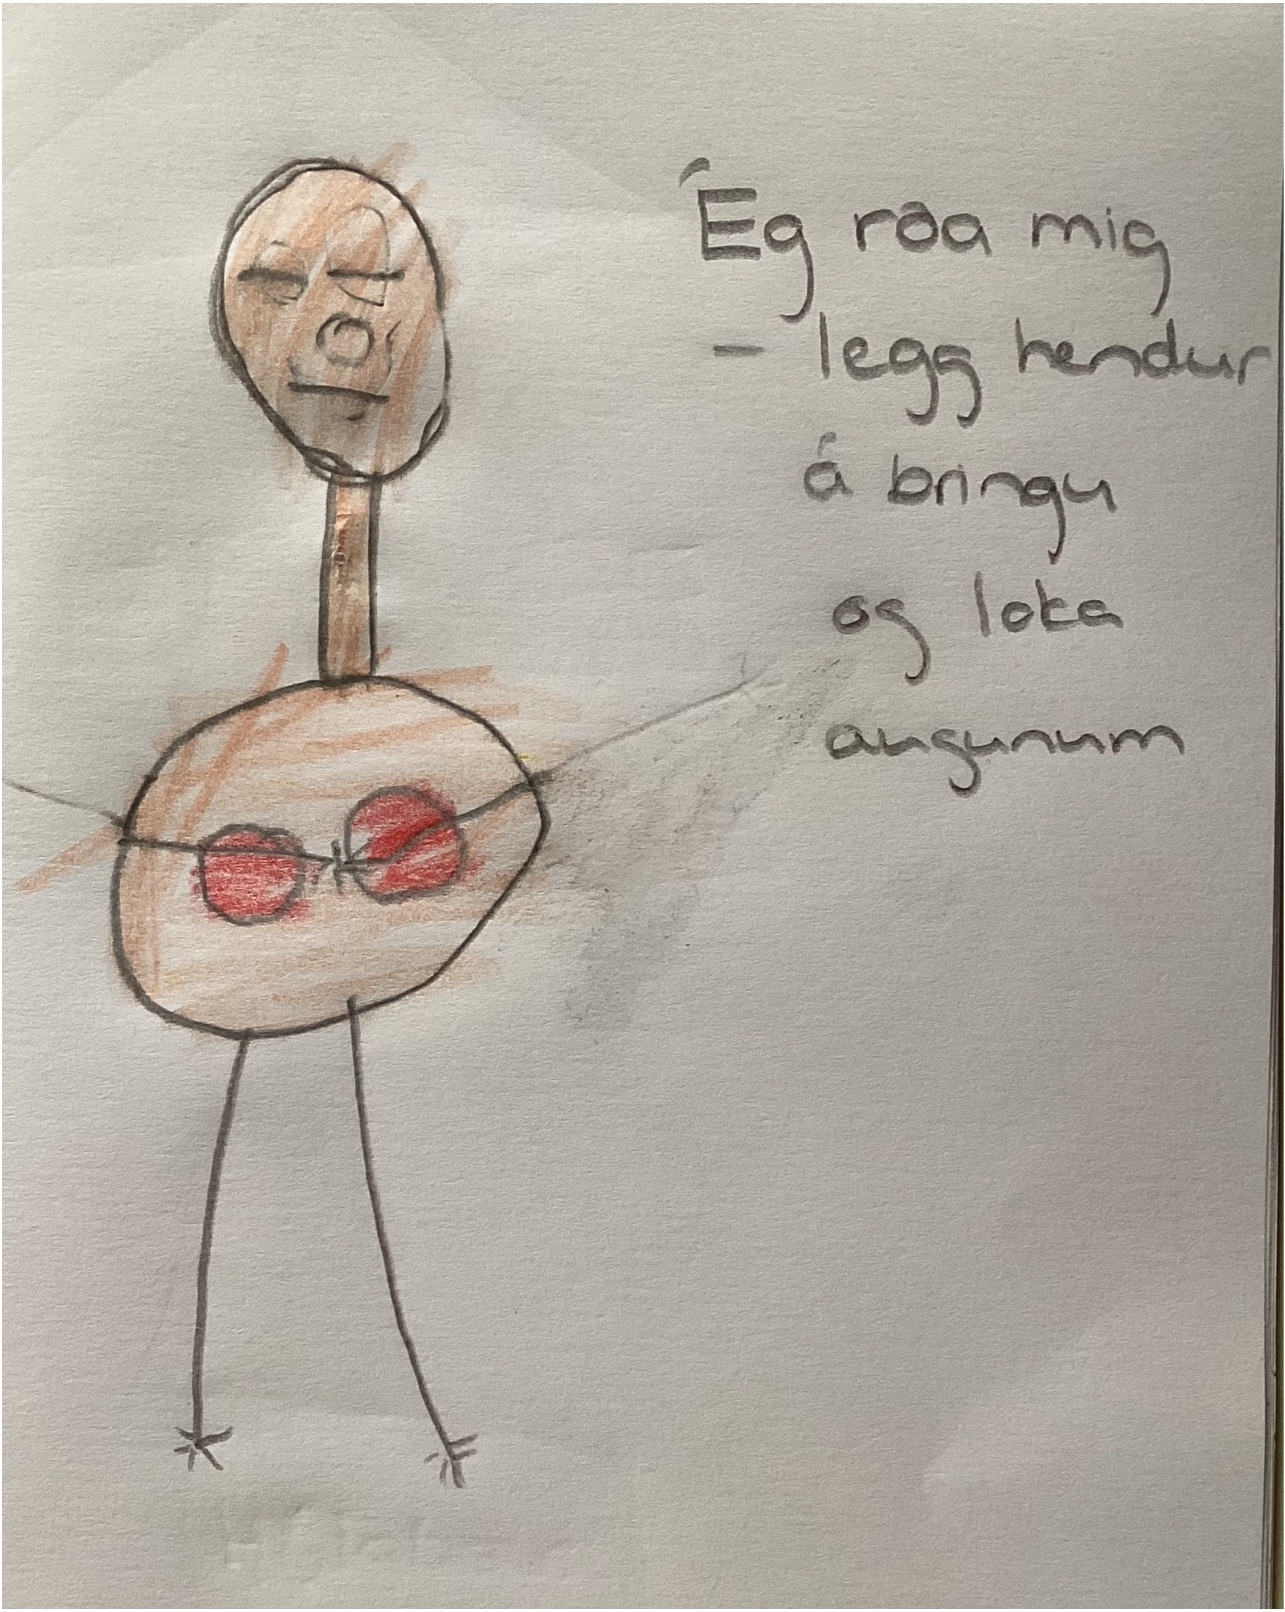 Ég róa mig
- legg hendur
á bringu
og loka
augunum